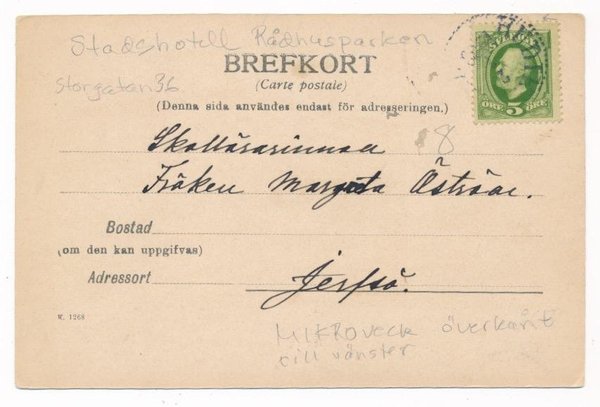 Stadshotell Rådhusparken
BREFKORT
Storgatan 36
(Carte postale)
(Denna sida användes endast för adresseringen.)
ÖRE 5 ÖRE
8
Skollärarinnan
Fröken Margeta
Bostad
(om den kan uppgifvas)
Adressort Jerfsö.
W. 1268
MIKROVECK överkant
till vänster